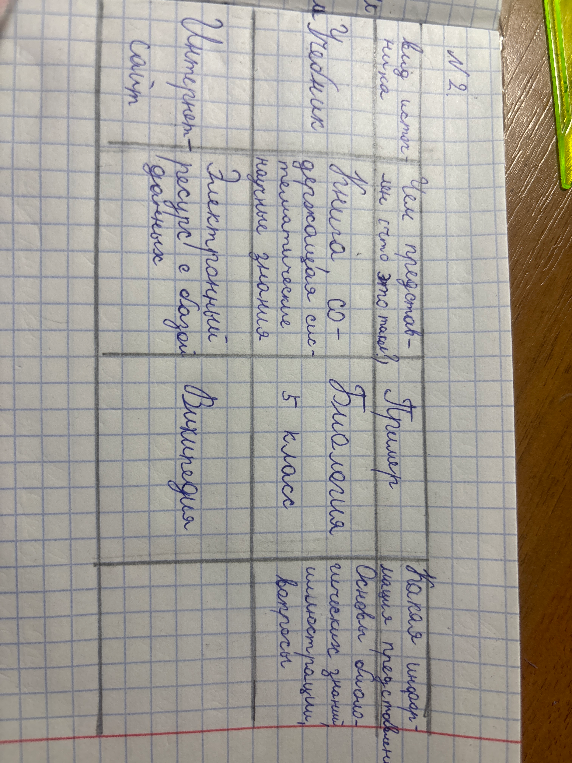 №2
вид источ-
ника
Чем представ-
лен (что это такое?)
Пример
Какая инфор-
мация представлена
Учебник
Книга со-
держащая сис-
тематические
научные знания
Биология
5 класс
Основы биоло-
гических знаний,
иллюстрации,
вопросы
Интернет-
сайт
Электронный
ресурс с базой
данных
Википедия